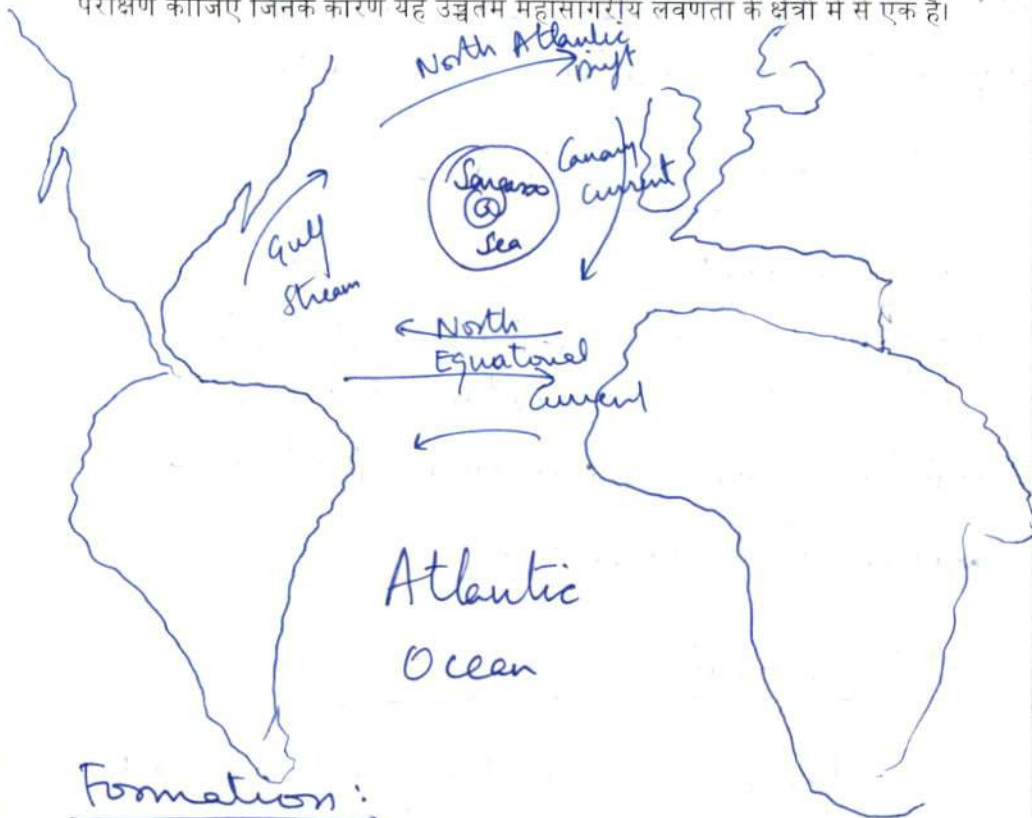 परीक्षण कीजिए जिनके कारण यह उच्चतम महासागरीय लवणता के क्षेत्रों में से एक है।
North Atlantic
Drift
Sargasso
Sea
Canary
Current
Gulf
Stream
North
Equatorial
Current
Atlantic
Ocean
Formation: